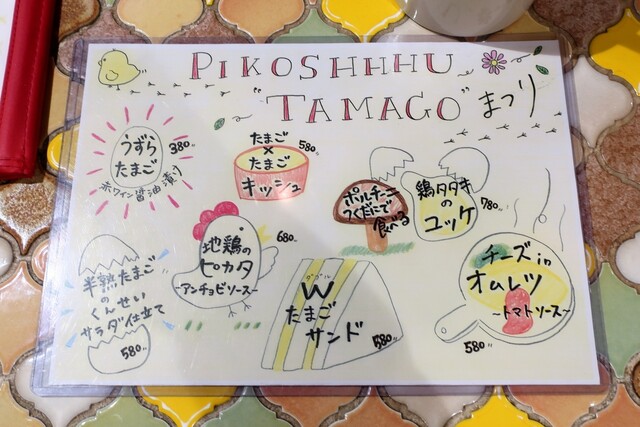 PIKOSHHHU
"TAMAGO" まつり
うずら
たまご
380-
赤ワイン醤油漬け
たまご
×
たまご
キッシュ
580-
ポルチーニ
つくだにで
食べる
鶏タタキ
の
ユッケ
780-
半熟たまご
のくんせい
サラダ仕立て
580-
地鶏の
ピカタ
~アンチョビソース~
680-
ダブル
W
たまご
サンド
580-
チーズin
オムレツ
~トマトソース~
580-